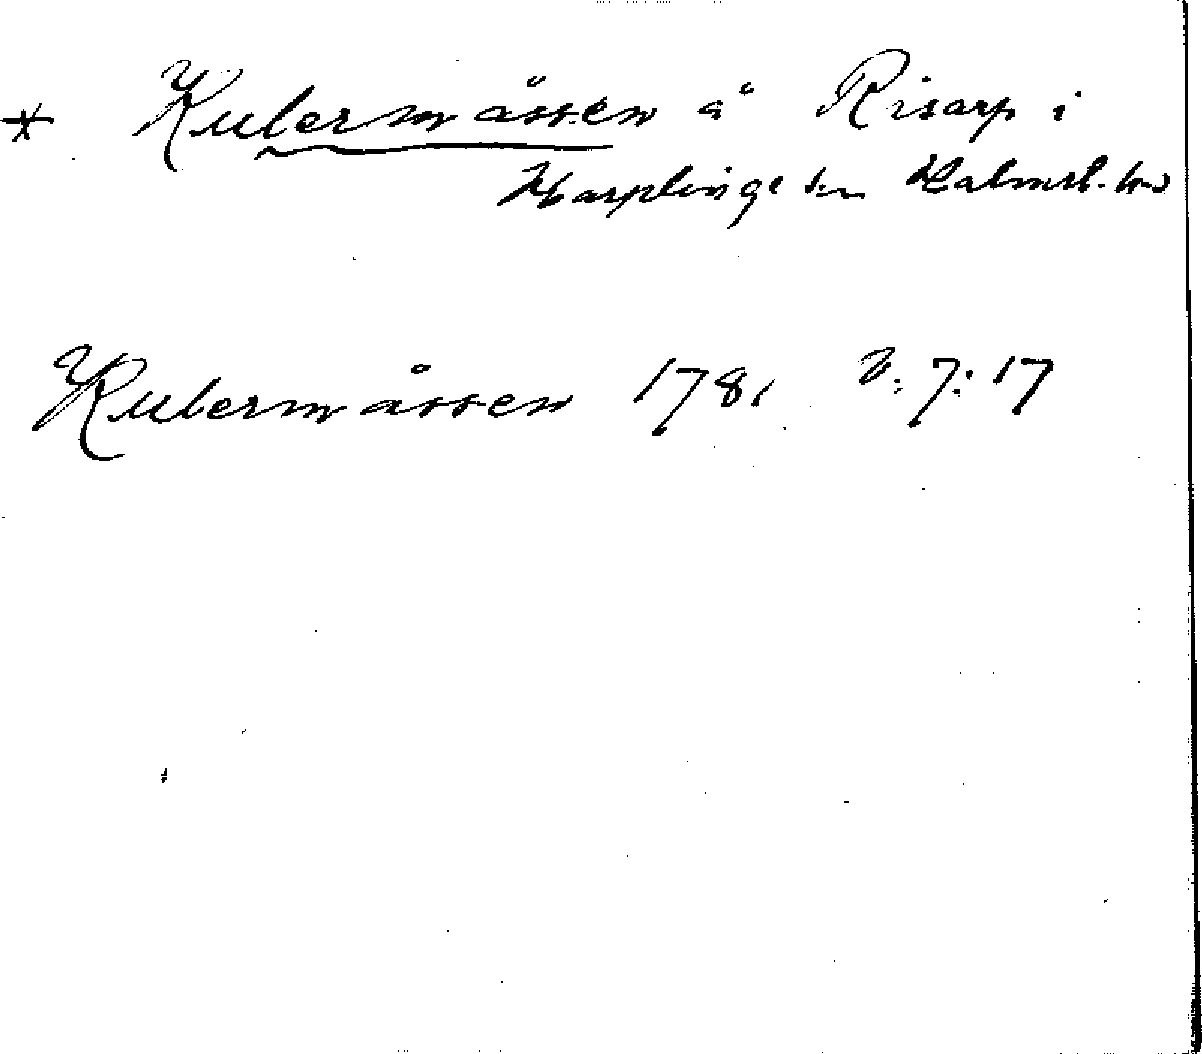 * Kubermåssen å Risarp i
Harplinge sn Halmst. hd
Kubermåssen 1781 7:17